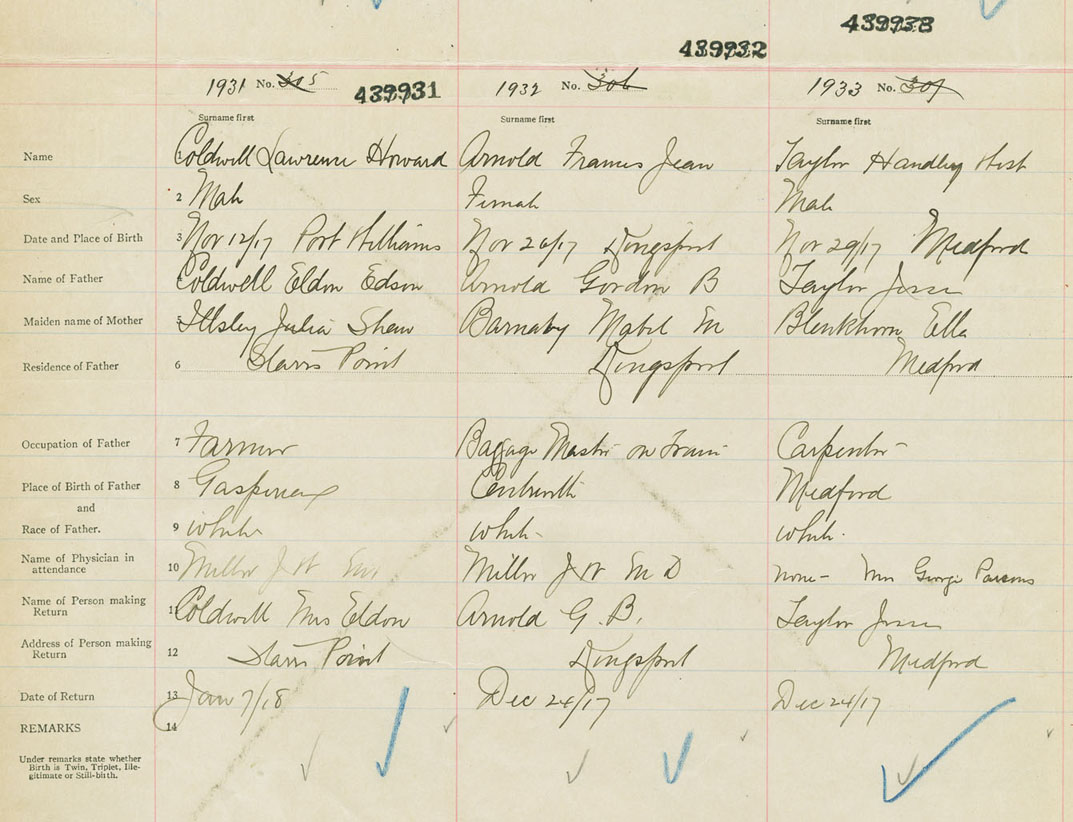 439933
439932
1931 No. 305 439931 1932 No. 306 1933 No. 307
Surname first Surname first Surname first
Name Coldwell Lawrence Howard Arnold Frances Jean Taylor Handley
Sex 2 Male Female Male
Date and Place of Birth 3 Nov 12/17 Port Williams Nov 26/17 Kingsport Nov 29/17 Medford
Name of Father Coldwell Eldon Edson Arnold Gordon B Taylor Jesse
Maiden name of Mother 5 Illsley Julia Shaw Barnaby Mabel M Blenkhorn Ella
Residence of Father 6 Starrs Point Kingsport Medford
Occupation of Father 7 Farmer Baggage Master on Train Carpenter
Place of Birth of Father 8 Gaspereau Medford
and
Race of Father. 9 white white white.
Name of Physician in
attendance 10 Miller J W M.D. Miller J W M D none - Mrs George Parsons
Name of Person making
Return 11 Coldwell Mrs Eldon Arnold G. B. Taylor Jesse
Address of Person making
Return 12 Starrs Point Kingsport Medford
Date of Return 13 Jan 7/18 Dec 24/17 Dec 24/17
REMARKS 14
Under remarks state whether
Birth is Twin, Triplet, Ille-
gitimate or Still-birth.